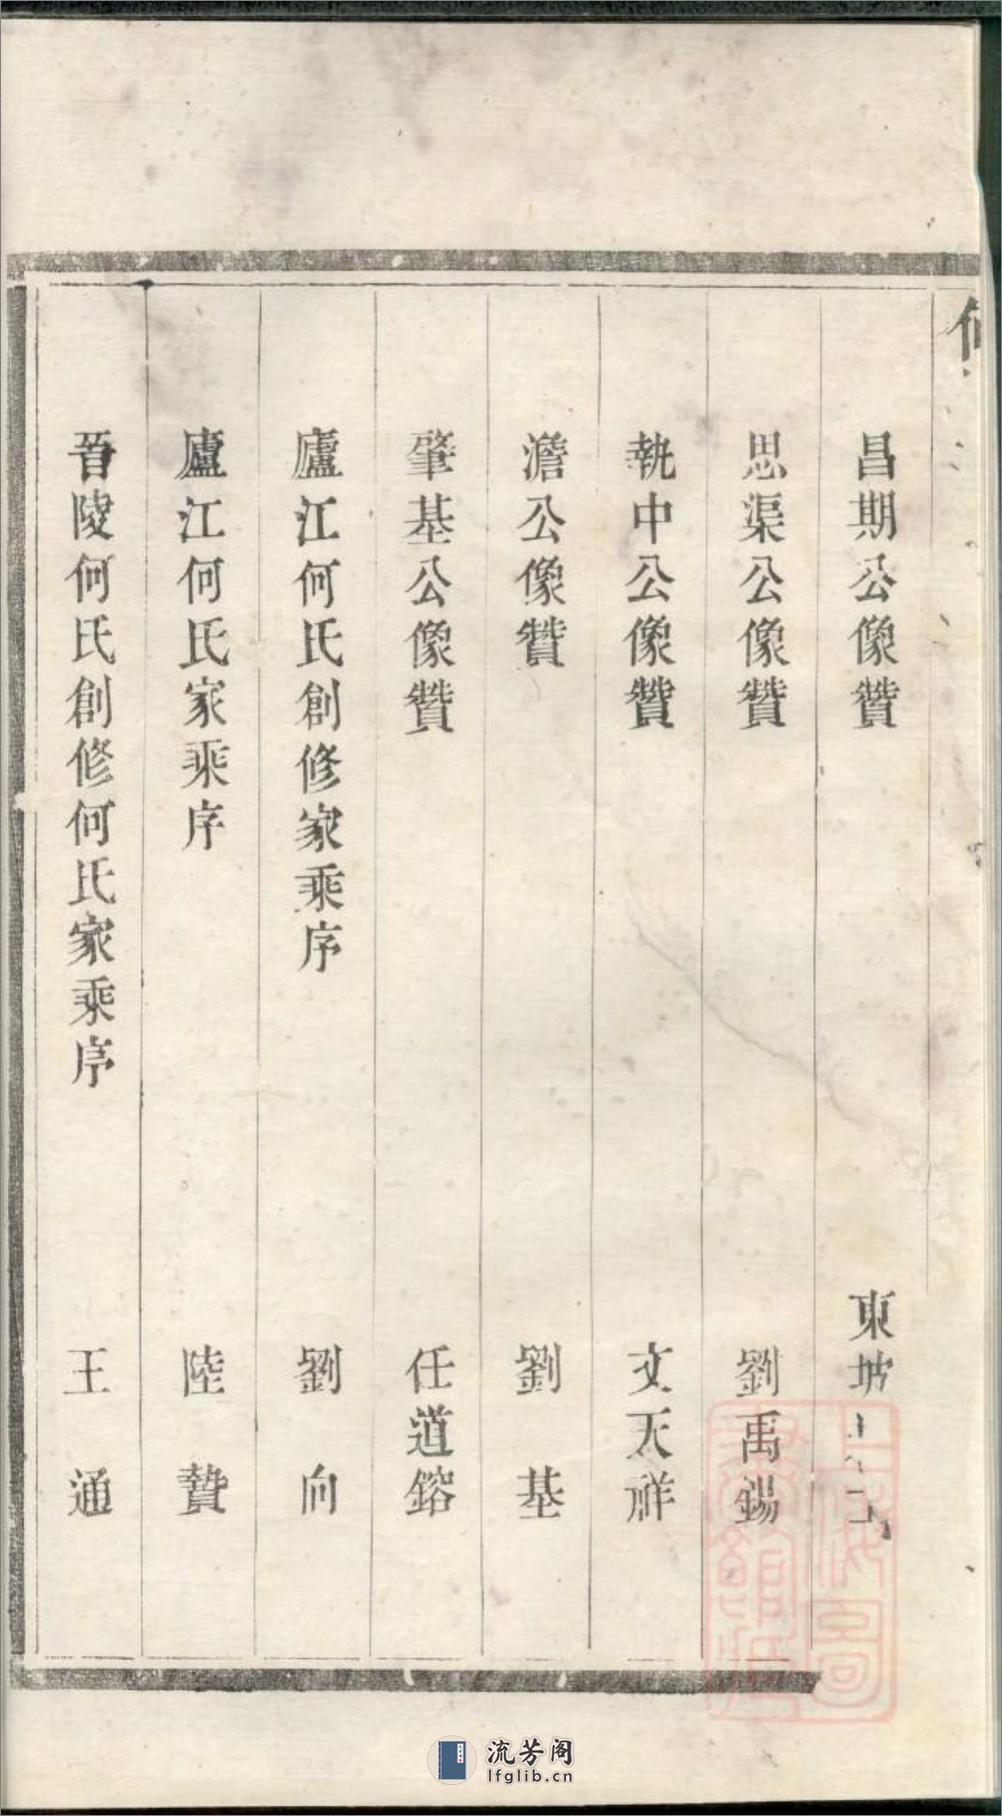 昌期公像贊 東坡
思渠公像贊 劉禹錫
執中公像贊 文天祥
澹公像贊 劉基
肇基公像贊 任道鎔
廬江何氏創修家乘序 劉向
廬江何氏家乘序 陸贄
晉陵何氏創修何氏家乘序 王通
流芳阁
lfglib.cn